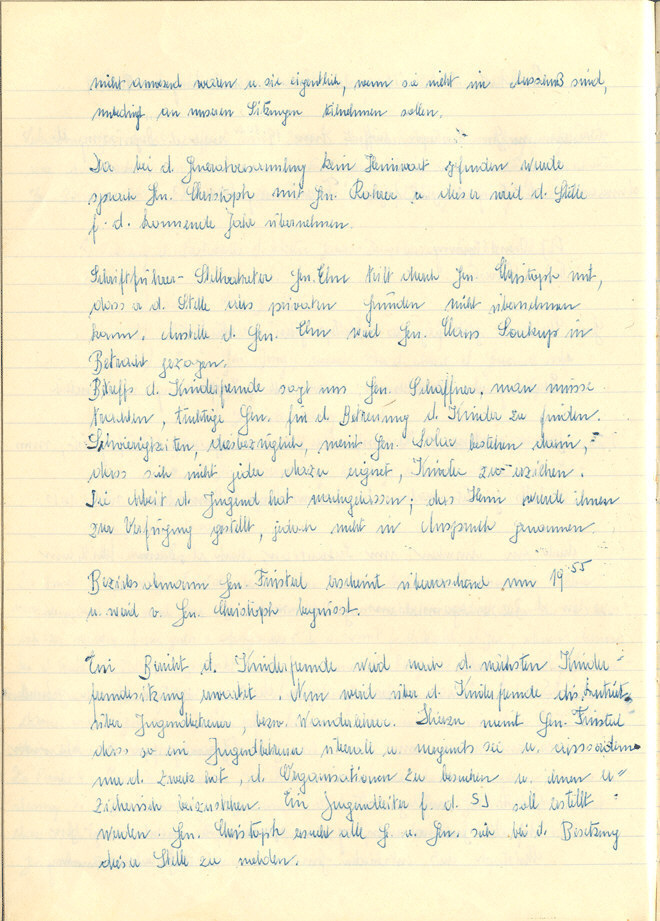 nicht anwesend waren u. sie eigentlich, wenn sie nicht im Ausschuß sind,
unbedingt an unseren Sitzungen teilnehmen sollen.
Da bei d. Generalversammlung kein Heimwart gefunden wurde
sprach Gen. Christoph mit Gen. Rohrer u. dieser wird d. Stelle
f. d. kommende Jahr übernehmen.
Schriftführer-Stellvertreter Gen. teilt durch Gen. Christoph mit,
dass er d. Stelle aus privaten Gründen nicht übernehmen
kann. Anstelle d. Gen. wird Gen. Hans Soukup in
Betracht gezogen.
Betreffs d. Kinderfreunde sagt uns Gen. Schaffner, man müsse
trachten, tüchtige Gen. für d. Betreuung d. Kinder zu finden.
Schwierigkeiten, diesbezüglich, meint Gen. bestehen darin,
dass sich nicht jeder dazu eignet, Kinder zu erziehen.
Die Arbeit d. Jugend hat nachgelassen; das Heim wurde ihnen
zur Verfügung gestellt, jedoch nicht in Anspruch genommen.
Bezirksobmann Gen. erscheint überraschend um 19.55
u. wird v. Gen. Christoph begrüsst.
Ein Bericht d. Kinderfreunde wird nach d. nächsten Kinder-
freundesitzung erwartet. Nun wird über d. Kinderfreunde disskutiert.
über Jugendbetreuer, bezw. Wanderlehrer. Hiezu meint Gen.
dass so ein Jugendbetreuer überall u. nirgends sei u. ausserdem
nur d. Zweck hat, d. Organisationen zu besuchen u. ihnen er-
zieherisch beizustehen. Ein Jugendleiter f. d. SJ soll erstellt
werden. Gen. Christoph ersucht alle G. u. Gen. sich bei d. Besetzung
dieser Stelle zu melden.